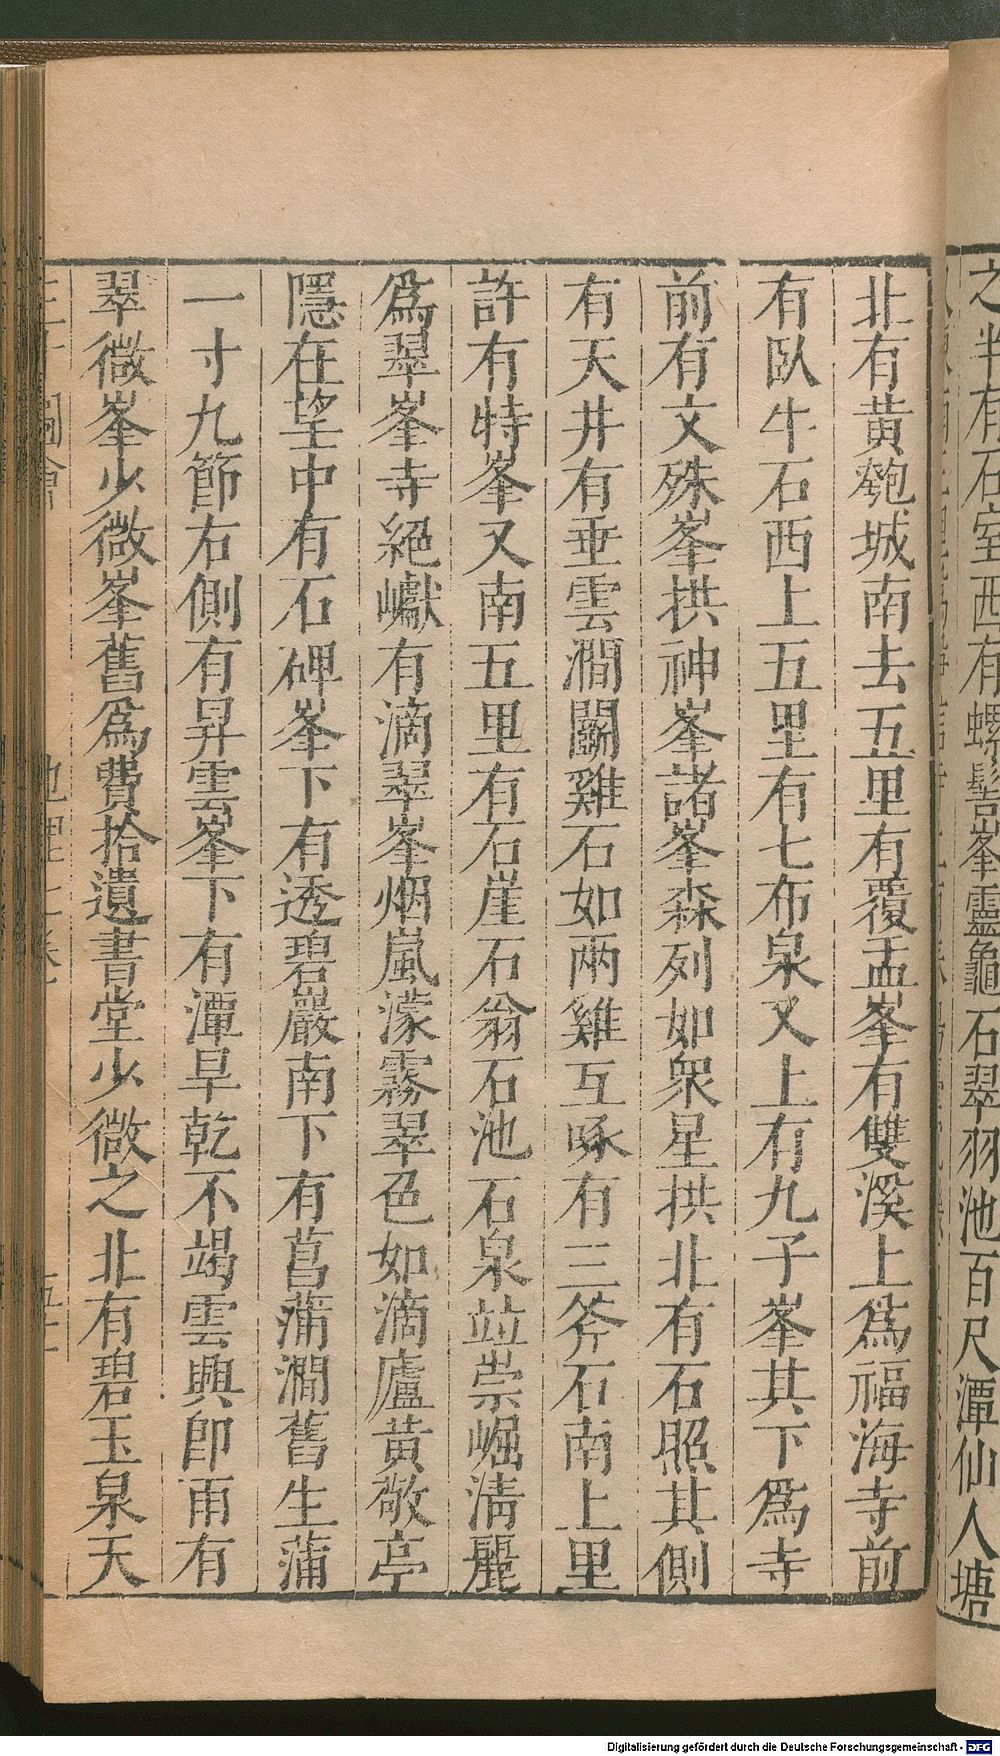 之半有石室西有螺髻峯靈龜石翠羽池百尺潭仙人塘
北有黃匏城南去五里有覆盂峯有雙溪上爲福海寺前
有臥牛石西上五里有七布泉又上有九子峯其下爲寺
前有文殊峯拱神峯諸峯森列如衆星拱北有石照其側
有天井有垂雲澗鬭雞石如兩雞互啄有三斧石南上里
許有特峯又南五里有石崖石翁石池石泉竝崇崛淸麗
爲翠峯寺絕巘有滴翠峯烟嵐濛霧翠色如滴廬黃敬亭
隱在望中有石碑峯下有透碧巖南下有菖蒲澗舊生蒲
一寸九節右側有昇雲峯下有潭旱乾不竭雲興卽雨有
翠微峯少微峯舊爲費拾遺書堂少微之北有碧玉泉天
圖會
Digitalisierung gefördert durch die Deutsche Forschungsgemeinschaft - DFG